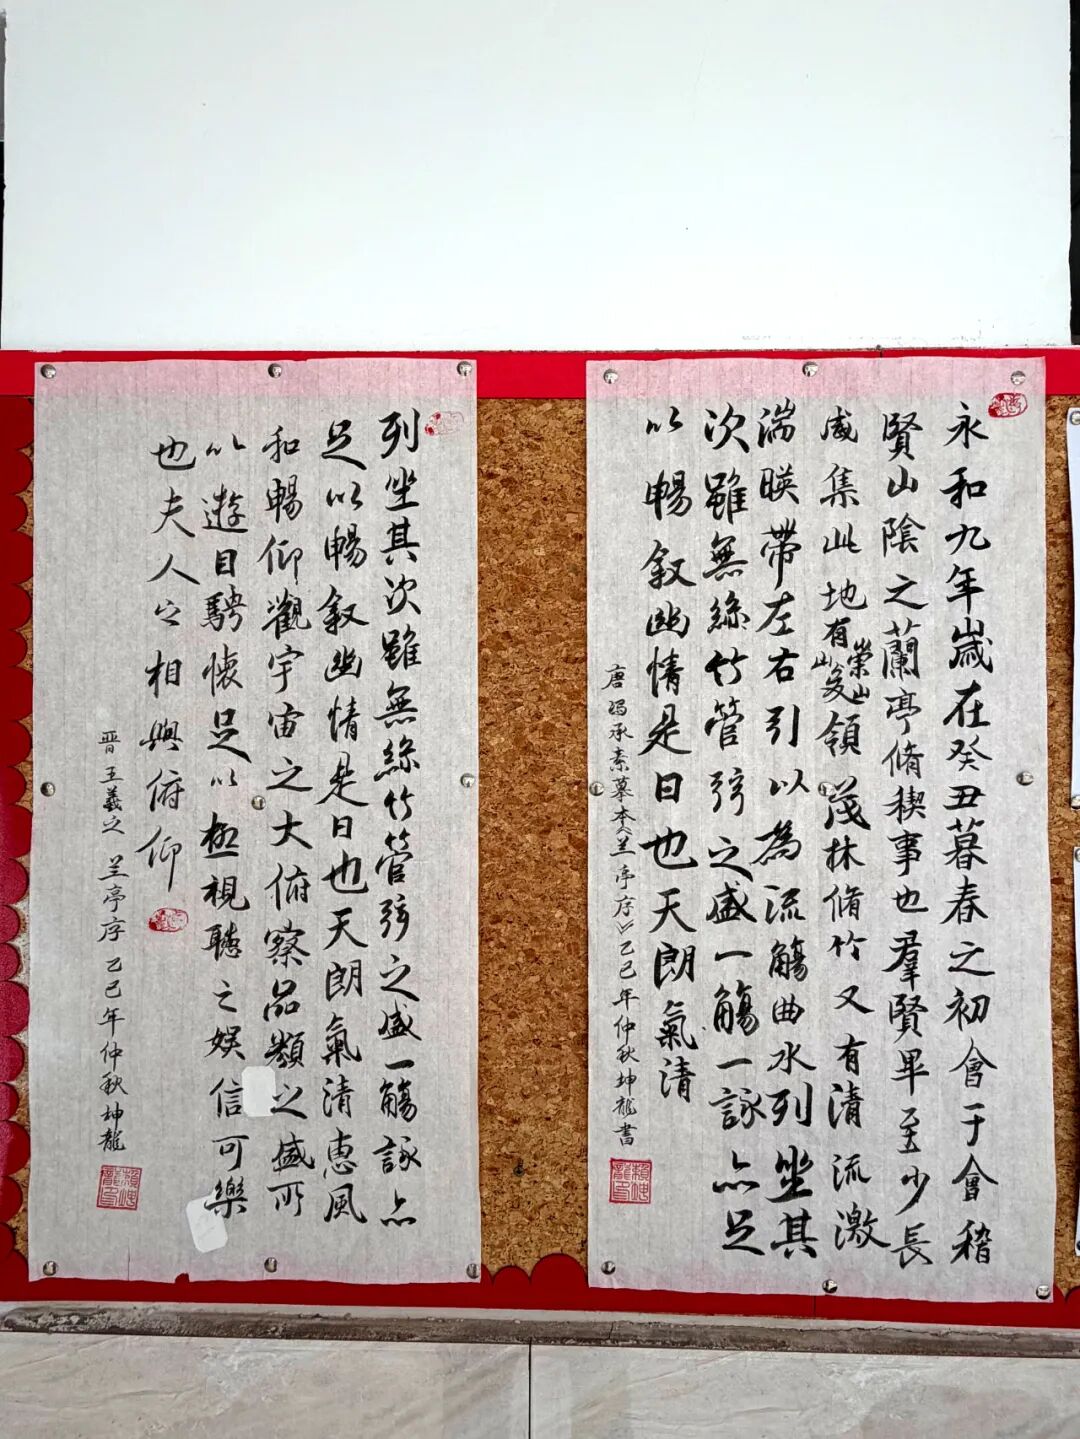 永和九年歲在癸丑暮春之初會于會稽
賢山陰之蘭亭脩稧事也羣賢畢至少長
咸集此地有崇山峻領茂林脩竹又有清流激
湍暎帶左右引以為流觴曲水列坐其
次雖無絲竹管弦之盛一觴一詠亦足
以暢敘幽情是日也天朗氣清
唐冯承素摹本《兰亭序》乙巳年仲秋坤龍書
列坐其次雖無絲竹管弦之盛一觴詠亦
足以暢敘幽情是日也天朗氣清惠風
和暢仰觀宇宙之大俯察品類之盛所
以遊目騁懷足以極視聽之娛信可樂
也夫人之相與俯仰
晋王羲之兰亭序乙巳年仲秋坤龍